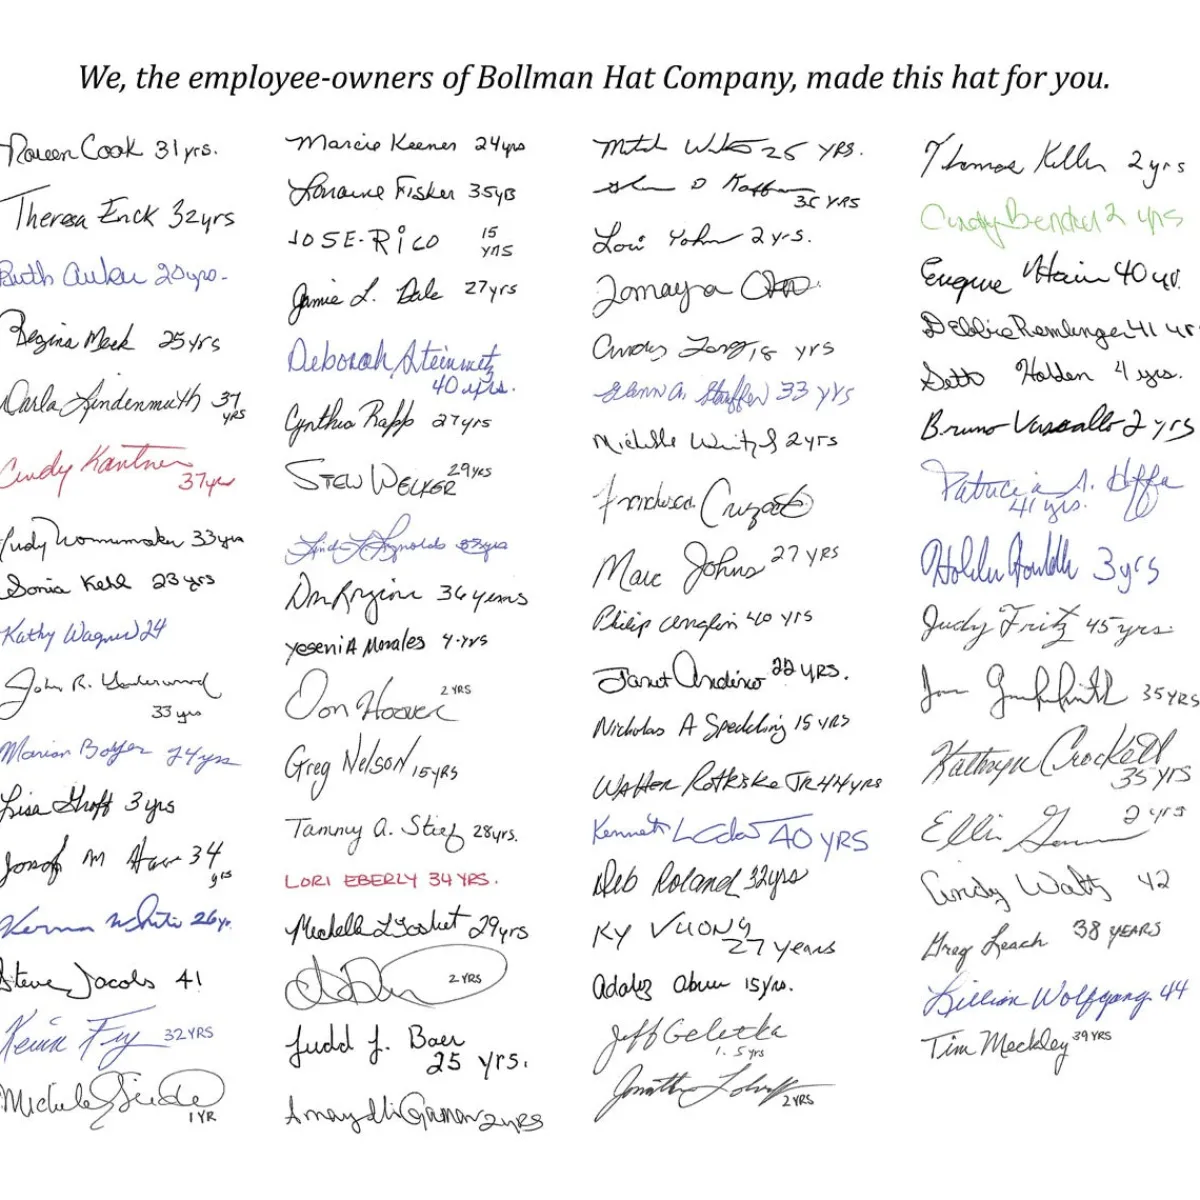 We, the employee-owners of Bollman Hat Company, made this hat for you.
Cook 31 yrs.
Theresa Enck 32 yrs
Ruth Auker 20 yrs.
Regina Mock 25 yrs
Carla Lindenmuth 37
yrs
Cindy Kantner
37 yrs
Judy 33 yrs
Sonia Kehl 23 yrs
Kathy Wagner 24
John R. Underwood
33 yrs
Marian Boyer 24 yrs
Lisa Groff 3 yrs
Josef M 34
yrs
White 26 yr.
Steve Jacobs 41
Kevin Fry 32 YRS
Michele
1 YR
Marcie Keener 24 yrs
Lorraine Fisher 35 yrs
JOSE-RICO 15
YRS
Jamie L. Dale 27 yrs
Deborah Steinmetz
40 yrs.
Cynthia Rapp 27 yrs
STEW WELKER 29 YRS
Linda L Reynolds
36 years
YeseniA Morales 4-YRS
Don Hoover 2 YRS
Greg Nelson 15 YRS
Tammy A. Stief 28 yrs.
LORI EBERLY 34 YRS.
Michelle L 29 yrs
2 YRS
Judd J. Baer
25 yrs.
2 YRS
Mitch 25 YRS.
35 YRS
Lori Yohn 2 yrs.
Tomayra
Cindy 18 yrs
Glenn A. Stauffer 33 yrs
Michelle 2 yrs
Francheska
Marc Johns 27 YRS
Philip 40 YRS
Janet Andino 22 YRS.
Nicholas A Speckling 15 YRS
Walter JR 44 YRS
Kenneth L 40 YRS
Deb Roland 32 yrs
KY VUONG
27 years
15 yrs.
Jeff Geletka
1.5 yrs
Jonathan
2 YRS
Thomas Keller 2 yrs
Cindy Bender 2 yrs
Eugene 40 yr.
Debbie Remlinger 41 yr
Seth Holden 4 yrs.
Bruno Vassallo 2 yrs
Patricia A. Heffa
41 yrs.
3 yrs
Judy Fritz 45 yrs.
35 YRS
Kathryn Crockett
35 YRS
2 yrs
Cindy Waltz 42
Greg Leach 38 YEARS
Lillian Wolfgang 44
Tim Meckley 39 YRS